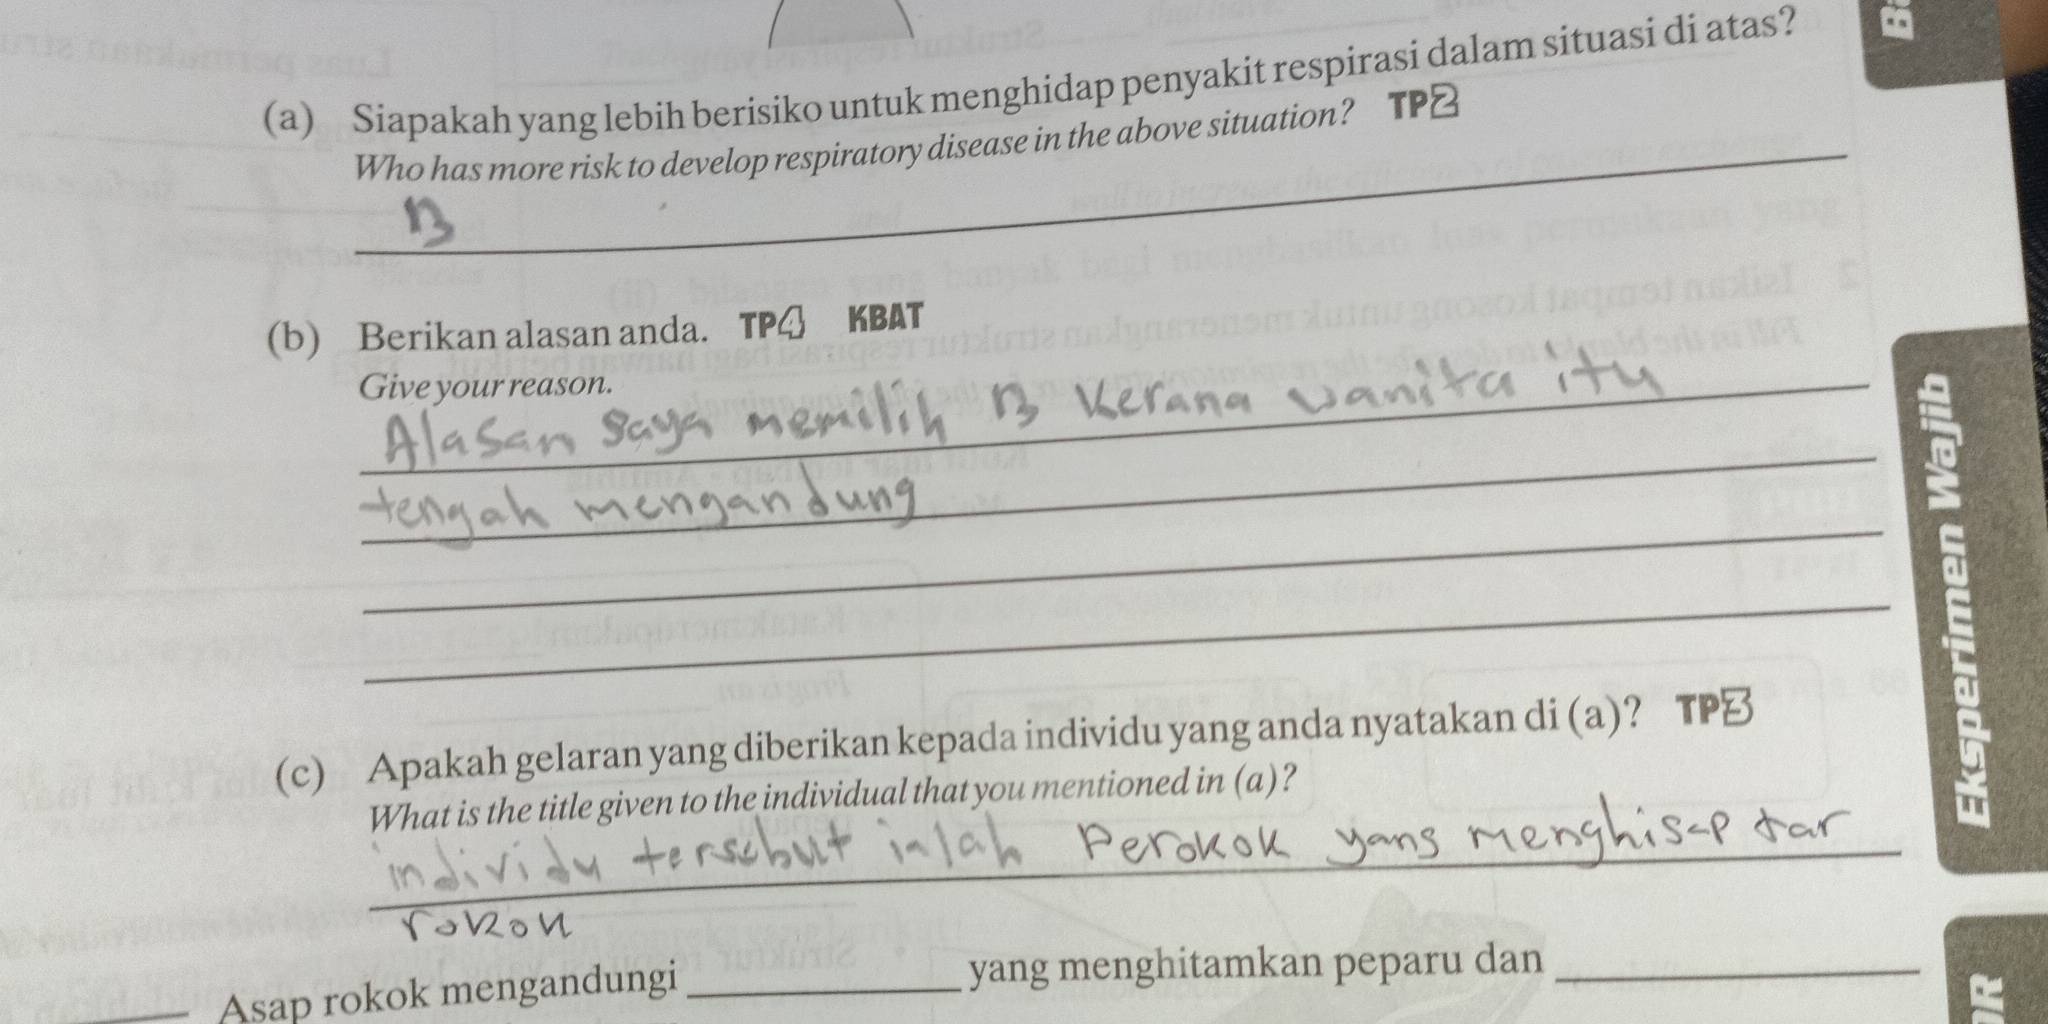 (a) Siapakah yang lebih berisiko untuk menghidap penyakit respirasi dalam situasi di atas?
Who has more risk to develop respiratory disease in the above situation? TP2
B
(b) Berikan alasan anda. TP4 KBAT
Give your reason.
Alasan saya memilih B kerana wanita itu
tengah mengandung
(c) Apakah gelaran yang diberikan kepada individu yang anda nyatakan di (a)? TP3
What is the title given to the individual that you mentioned in (a)?
individu tersebut ialah Perokok yang menghisap tar
rokok
Asap rokok mengandungi ____________ yang menghitamkan peparu dan ____________
Eksperimen Wajib